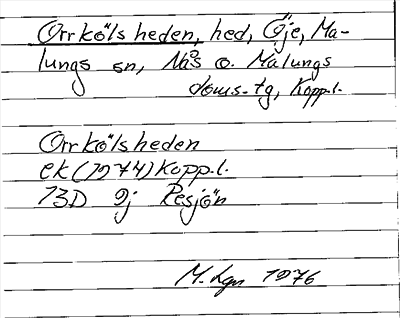 Orrkölsheden, hed, Öje, Ma-
lungs sn, Nås o. Malungs
doms.tg, Kopp.l.
Orrkölsheden
ek (1974) Kopp.l.
13D 9j Resjön
M. Lgn 1976